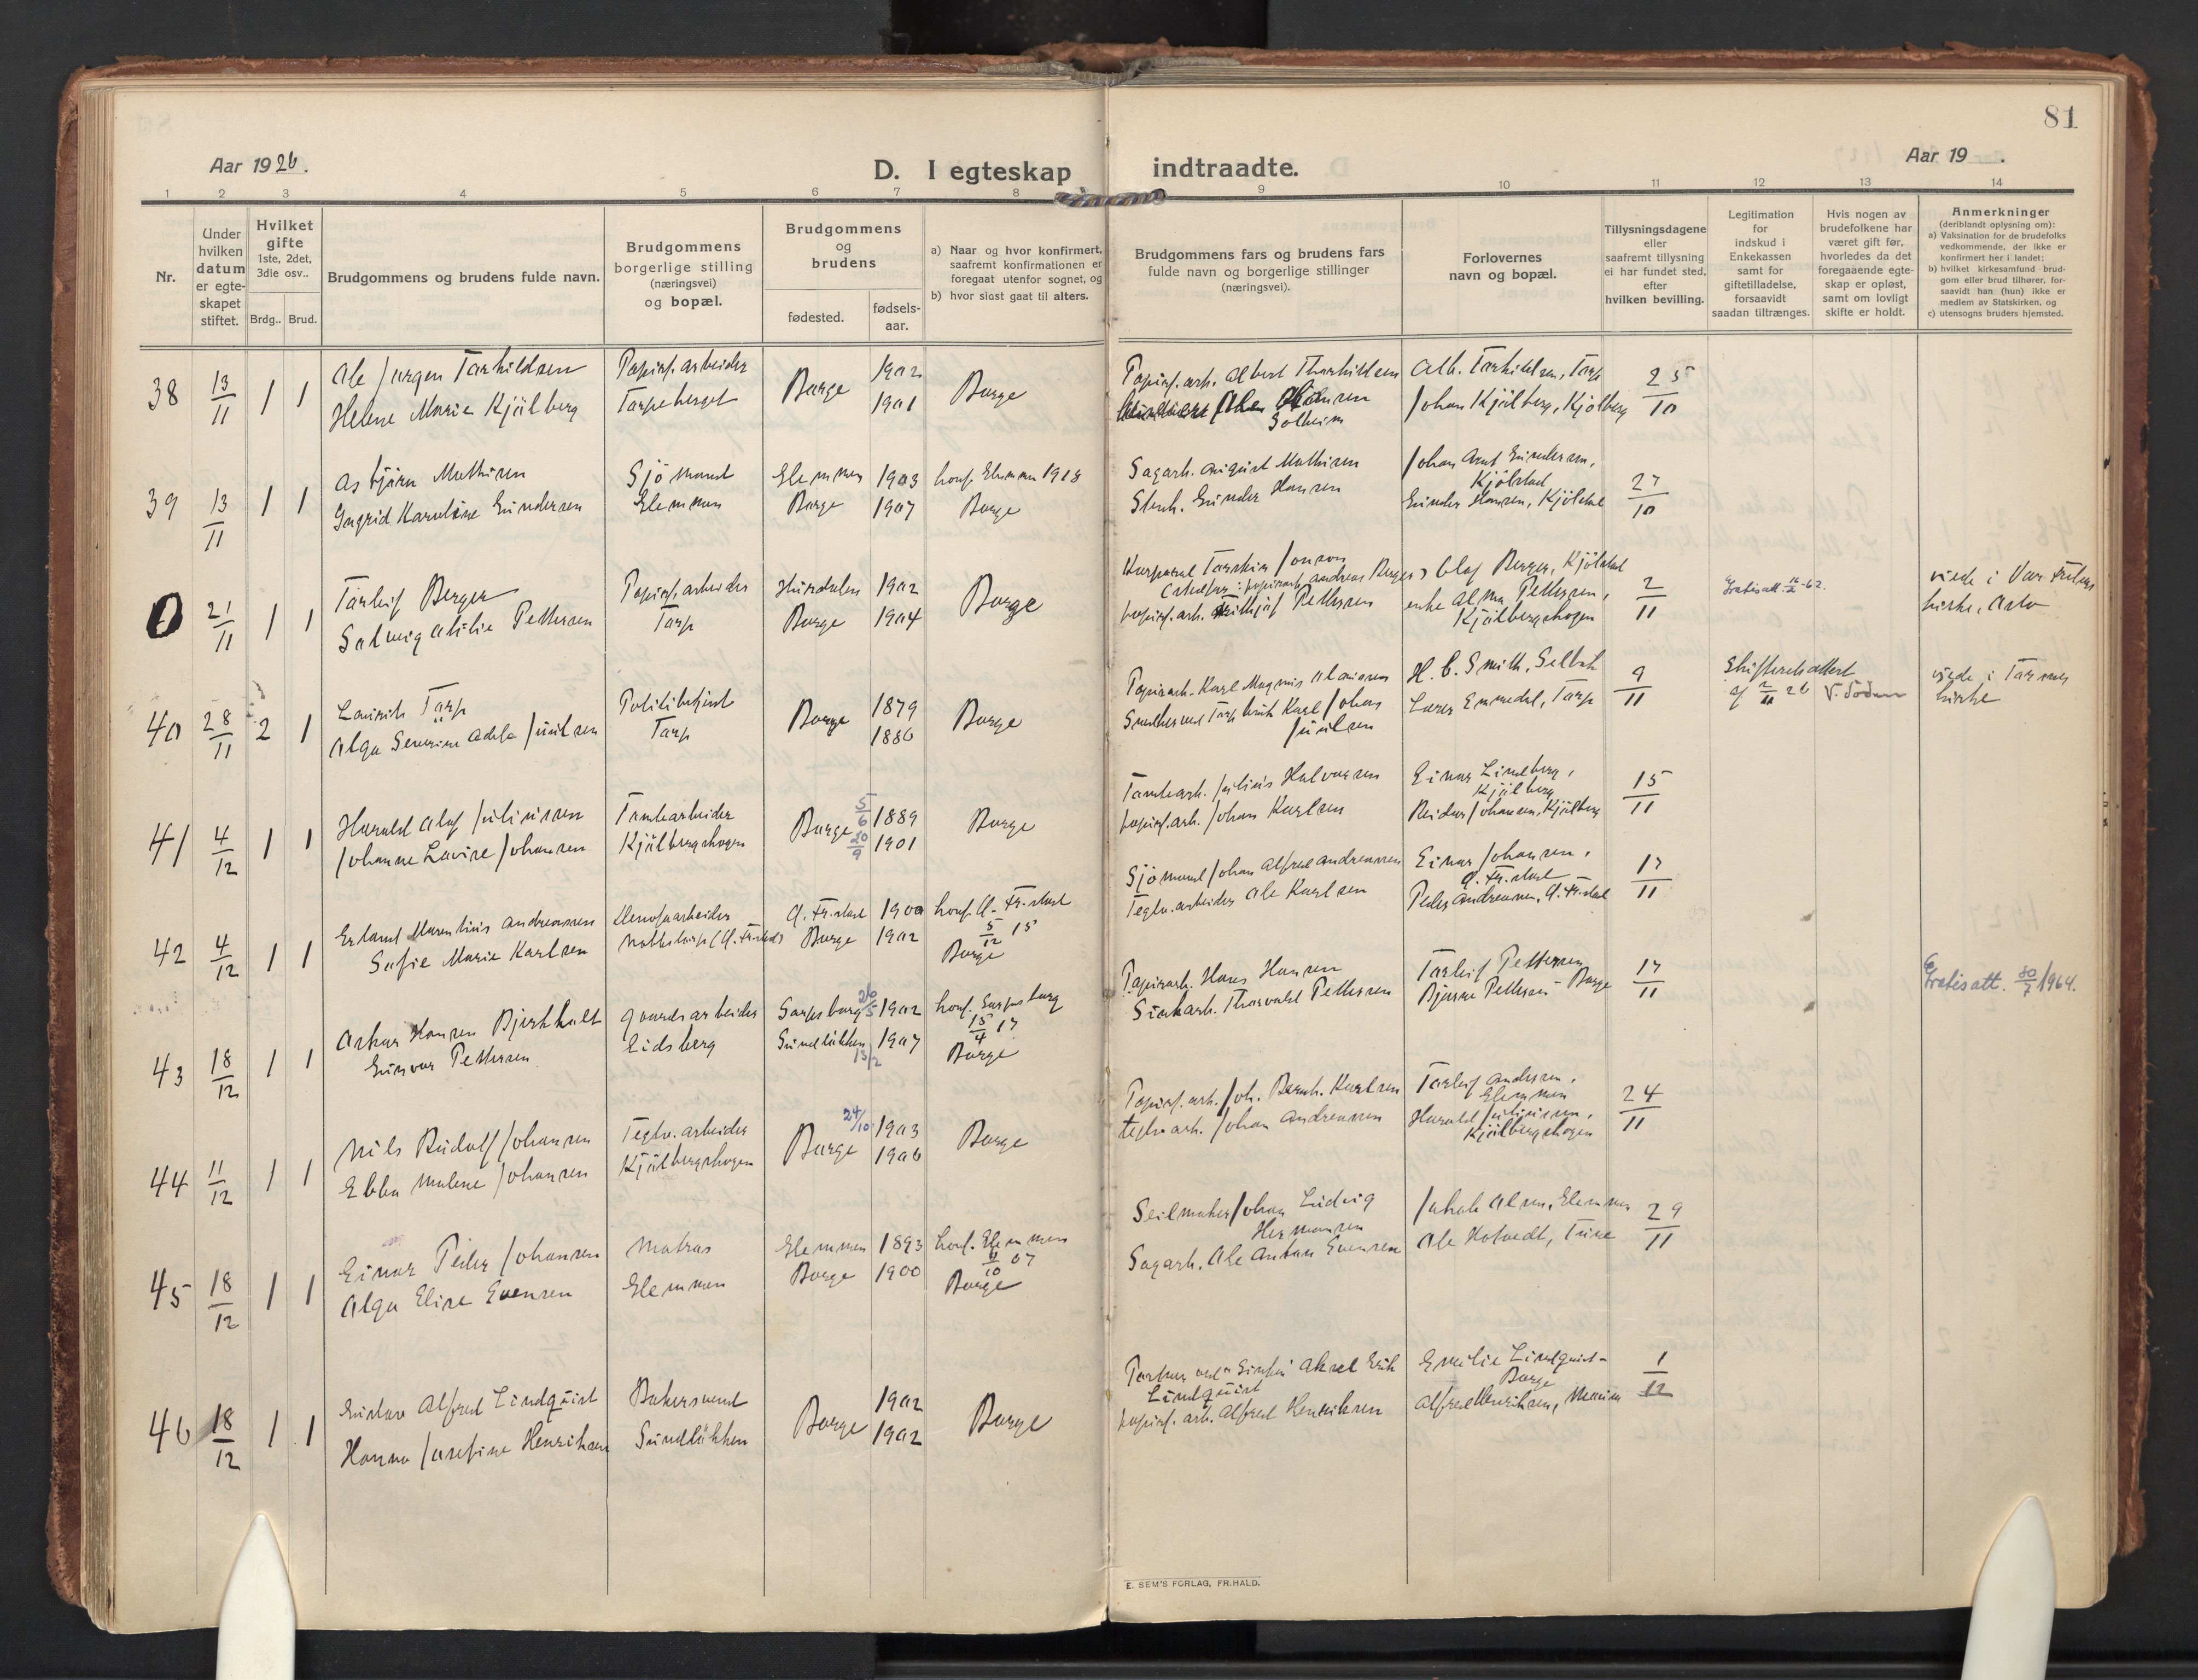 81
Aar 1926.
D. I egteskap
indtraadte.
Aar 19 .
1 2 3 4 5 6 7 8 9 10 11 12 13 14
Nr.
Under hvilken datum er egte-skapet stiftet.
Hvilket gifte 1ste, 2det, 3die osv..
Brdg.. Brud.
Brudgommens og brudens fulde navn.
Brudgommens borgerlige stilling (næringsvei) og bopæl.
Brudgommens og brudens
fødested.
fødsels-aar.
a) Naar og hvor konfirmert, saafremt konfirmationen er foregaat utenfor sognet, og
b) hvor sidst gaat til alters.
Brudgommens fars og brudens fars fulde navn og borgerlige stillinger (næringsvei).
Forlovernes navn og bopæl.
Tillysningsdagene eller saafremt tillysning ei har fundet sted, efter hvilken bevilling.
Legitimation for indskud i Enkekassen samt for giftetilladelse, forsaavidt saadan tiltrænges.
Hvis nogen av brudefolkene har været gift før, hvorledes da det foregaaende egte-skap er opløst, samt om lovligt skifte er holdt.
Anmerkninger (deriblandt oplysning om):
a) Vaksination for de brudefolks vedkommende, der ikke er konfirmert her i landet;
b) hvilket kirkesamfund brud-gom eller brud tilhører, for-saavidt han (hun) ikke er medlem av Statskirken, og
c) utensogns bruders hjemsted.
38 13/11 1 1 Ole Jørgen Torkildsen Papirf.arbeider Borge 1902 Borge Papirf.arb. Albert Thorkildsen Alb. Torkildsen, Torp 25/10
Helene Marie Kjølberg Torpeberget 1901 Solheim Johan Kjølberg, Kjølberg
39 13/11 1 1 Asbjørn Mathisen Sjømand Glemmen 1903 konf. Glemmen 1918 Sagarb. August Mathisen Johan Arnt Gundersen, Kjølstad 27/10
Ingrid Karoline Gundersen Glemmen Borge 1907 Borge Stenh. Gunder Hansen Gunder Hansen, Kjølstad
0 21/11 1 1 Torleif Berger Papirf.arbeider Hurdalen 1902 Borge Korporal Torstein Jonson Olaf Berger, Kjølstad 2/11 Gratisatt. viede i Vor Frelsers
Solveig Otilie Pettersen Torp Borge 1904 papirf.arb. Frithjof Pettersen enke Alma Pettersen, Kjølbergskogen kirke, Oslo
40 28/11 2 1 Laurits Torp Politibetjent Borge 1879 Borge Papirarb. Karl Magnus H. C. Smith, Selbak 9/11 Skifteretsattest viede i Torsnes
Olga Severine Adele Juulsen Torp 1886 Karl Johan Juulsen Lærer Emmedal, Torp kirke
41 4/12 1 1 Harald Olaf Juliussen Tomtearbeider Borge 5/6 1889 Borge Tomtearb. Julius Halvorsen Einar Lindberg, Kjølberg 15/11
Johanne Lovise Johansen Kjølbergskogen 20/9 1901 papirf.arb. Johan Karlsen Reidar Johansen, Kjølberg
42 4/12 1 1 Erland Marentius Andreassen Ø. Fr.stad 1900 konf. Ø. Fr.stad 5/12 15 Sjømand Johan Alfred Andreassen Einar Johansen, Ø. Fr.stad 17/11
Sofie Marie Karlsen Borge 1902 Borge Teglv.arbeider Ole Karlsen Peder Andreassen, Ø. Fr.stad
43 18/12 1 1 Oskar Hansen Bjerkholt Gaardsarbeider Sarpsborg 26/5 1902 konf. Sarpsborg 15/4 17 Papirarb. Hans Hansen Torleif Pettersen 17/11 Gratisatt. 30/7 1964.
Gunvor Pettersen Eidsberg Sundløkken 13/2 1907 Borge Thorvald Pettersen Bjarne Pettersen - Borge
44 11/12 1 1 Nils Rudolf Johansen Teglv.arbeider Borge 24/10 1903 Borge Papirf.arb. Joh. Bernh. Karlsen Torleif Andersen, Glemmen 24/11
Ebba Malene Johansen Kjølbergskogen 1906 teglv.arb. Johan Andreassen Harald Juliussen, Kjølbergskogen
45 18/12 1 1 Einar Peder Johansen Matros Glemmen 1893 konf. Glemmen 6/10 07 Seilmaker Johan Ludvig Hermansen Jakob Olsen, Glemmen 29/11
Olga Elise Evensen Glemmen Borge 1900 Borge Sagarb. Ole Anton Evensen Ole Hofsedt, Tune
46 18/12 1 1 Gustav Alfred Lindquist Bakersvend Borge 1902 Borge Aksel Erik Lindquist Emilie Lindquist - Borge 1/12
Hanna Josefine Henriksen Sundløkken 1902 papirf. arb. Alfred Henriksen Alfred Henriksen,
E. SEM'S FORLAG, FR.HALD.